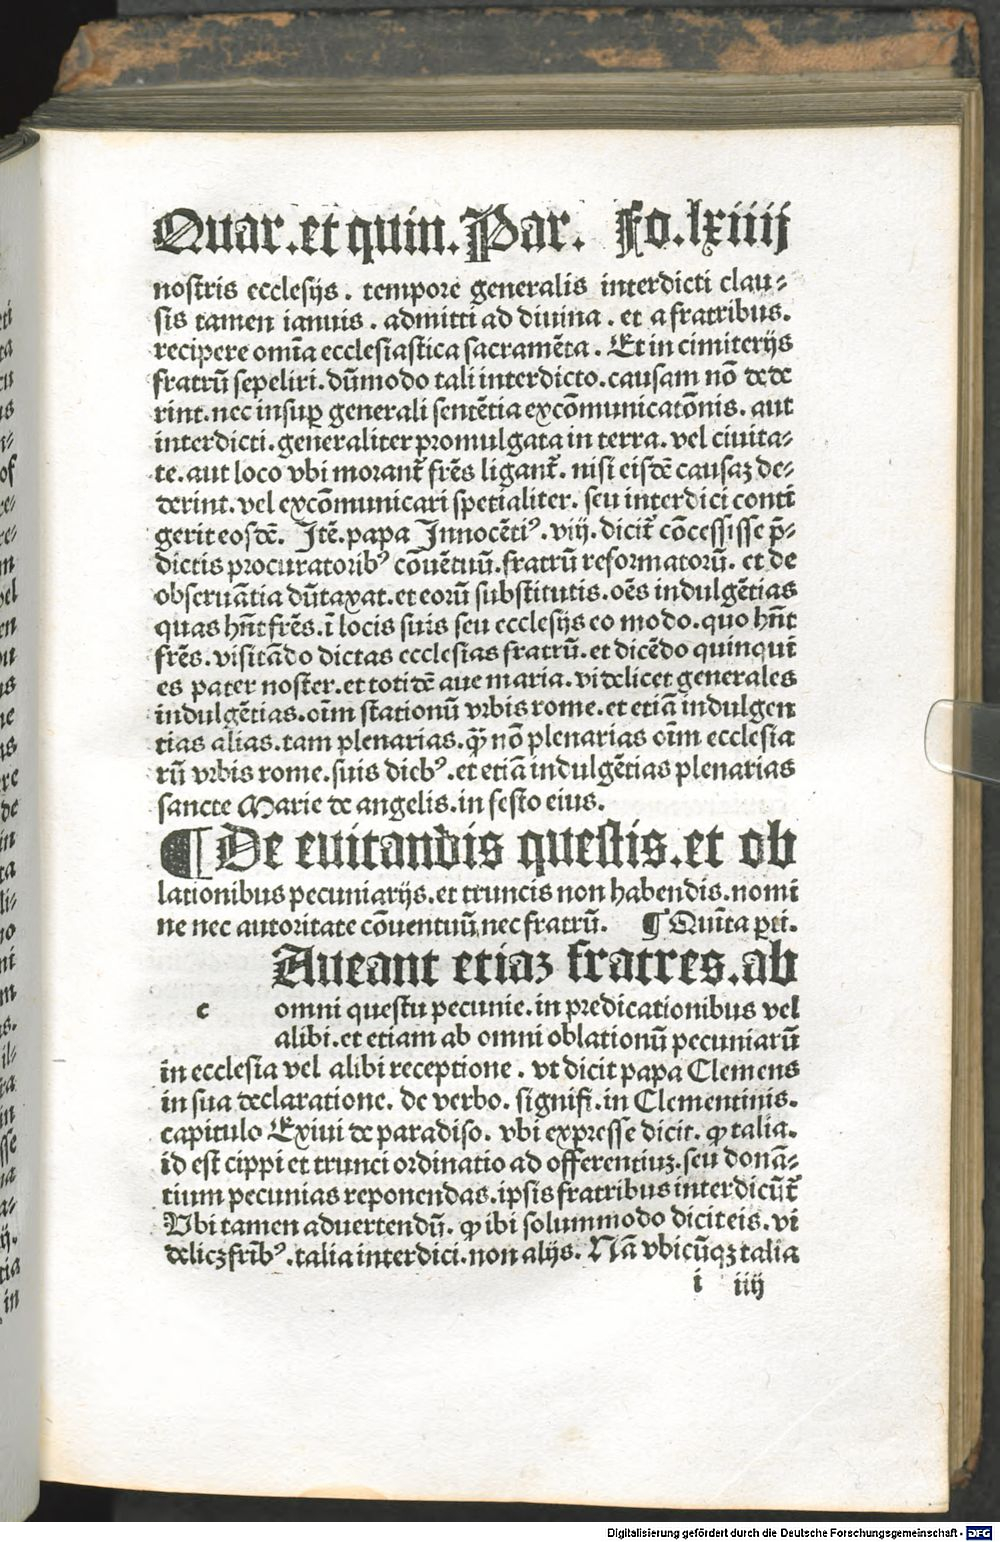 Quar. et quin. Par. Fo. lxiiij
nostris ecclesijs. tempore generalis interdicti clau-
sis tamen ianuis. admitti ad diuina. et a fratribus.
recipere omīa ecclesiastica sacramēta. Et in cimiterijs
fratrū sepeliri. dūmodo tali interdicto. causam nō dede
rint. nec insuꝑ generali sentētia excōmunicatōnis. aut
interdicti. generaliter promulgata in terra. vel ciuita-
te. aut loco vbi morant᷑ frēs ligant᷑. nisi eisdē causaꝫ de-
derint. vel excōmunicari spetialiter. seu interdici conti
gerit eosdē. Itē. papa Innocētiꝰ. viij. dicit᷑ cōcessisse p̄-
dictis procuratoribꝰ cōuētuū. fratrū reformatorū. et de
obseruātia dūtaxat. et eorū substitutis. oēs indulgētias
quas hn̄t frēs. ī locis suis seu ecclesijs eo modo. quo hn̄t
frēs. visitādo dictas ecclesias fratrū. et dicēdo quinqui
es pater noster. et totidē aue maria. videlicet generales
indulgētias. oīm stationū vrbis rome. et etiā indulgen
tias alias. tam plenarias. ꝙ̄ nō plenarias oīm ecclesia
rū vrbis rome. suis diebꝰ. et etiā indulgētias plenarias
sancte Marie de angelis. in festo eius.
¶ De euitandis questis. et ob
lationibus pecuniarijs. et truncis non habendis. nomi
ne nec autoritate cōuentuū nec fratrū. ¶ Quīta ꝑti.
Aueant etiaꝫ fratres. ab
c omni questu pecunie. in predicationibus vel
alibi. et etiam ab omni oblationū pecuniarū
in ecclesia vel alibi receptione. vt dicit papa Clemens
in sua declaratione. de verbo. signifi. in Clementinis.
capitulo Exiui de paradiso. vbi expresse dicit. ꝙ talia.
id est cippi et trunci ordinatio ad offerentiuꝫ. seu donā-
tium pecunias reponendas. ipsis fratribus interdicūt᷑
Vbi tamen aduertendū. ꝙ ibi solummodo dicit eis. vi
delicꝫ frībꝰ. talia interdici. non alijs. Nā vbicūqꝫ talia
i iiij
Digitalisierung gefördert durch die Deutsche Forschungsgemeinschaft - DFG